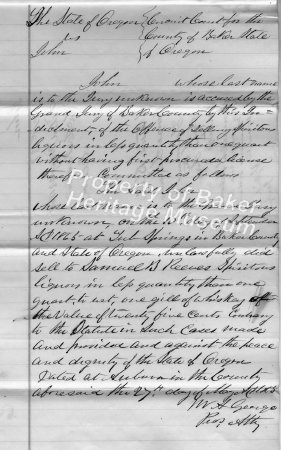 The State of Oregon Circuit Court for the
vs County of Baker State
John of Oregon
John whose last name
is to the Jury unknown is accused by the
Grand Jury of Baker County by this In=
dictment of the Offence of Selling Spiritous
liquors in less quantity than one quart
without having first procured a license
therefor Committed as follows
The said John
whose last name is to the Jury
unknown, on the day of
AD 1865 at Tub Springs in Baker County
and State of Oregon, unlawfully did
sell to Samuel B Reeves Spiritous
liquors in less quantity than one
quart to wit, one gill of whiskey of
the value of twenty five cents Contrary
to the Statute in such Cases made
and provided and against the peace
and dignity of the State of Oregon
Dated at Auburn in the County
aforesaid the 27th day of
W H George
Pros Atty
Property of Baker
Heritage Museum